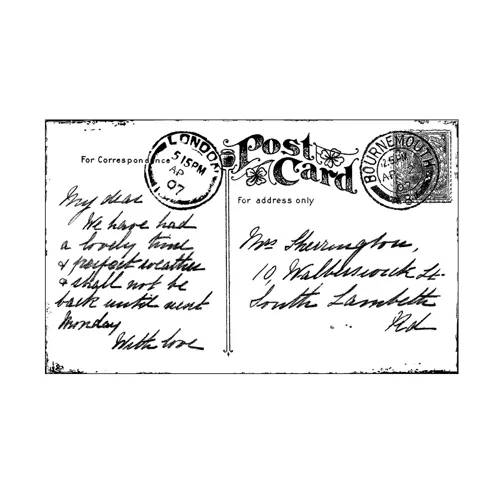 LONDON
5 15PM
AP
07
Post
Card
BOURNEMOUTH
AP
07
For Correspondence
For address only
My dear
We have had
a lovely time
& perfect weather
& shall not be
back until next
Monday
With love
Mrs Sherrington,
10, Walberswick St.
South Lambeth
Rd